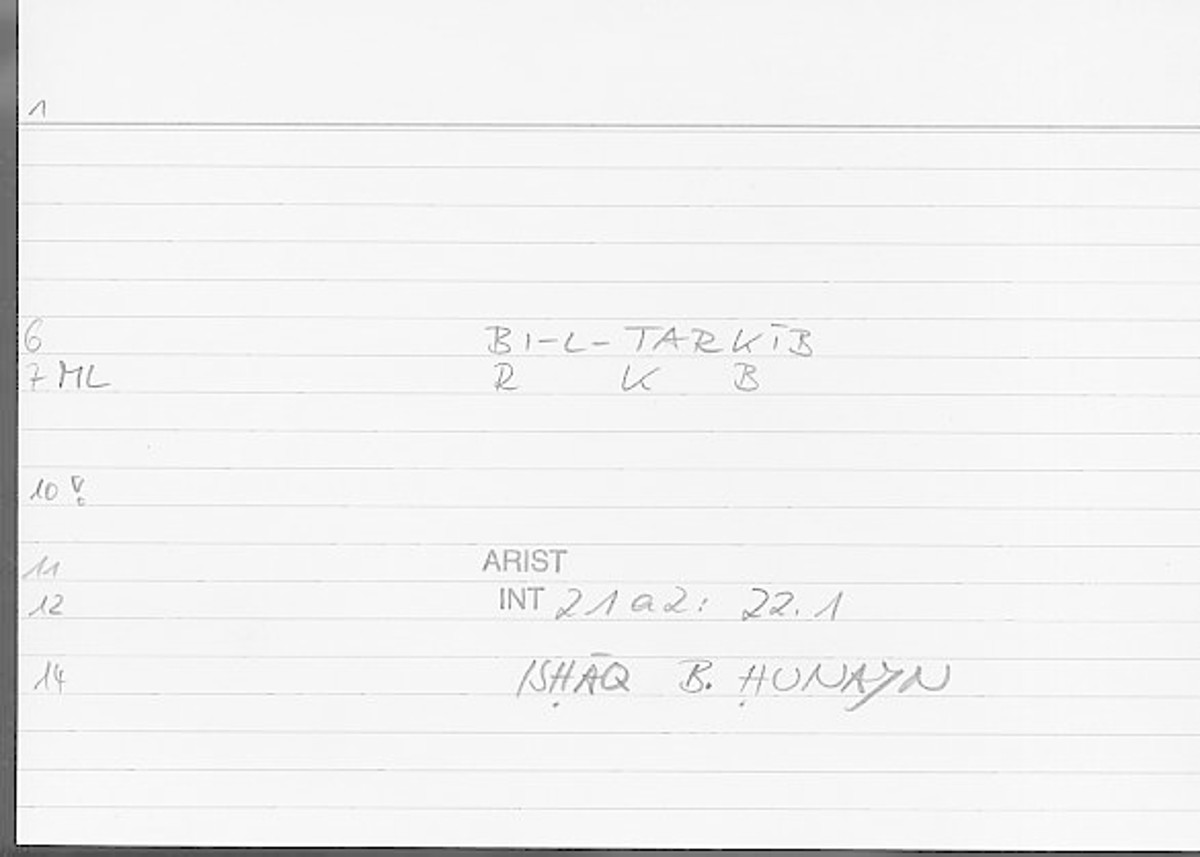 1
6 BI-L-TARKĪB
7 ML R K B
10
11 ARIST
12 INT 21a2: 22.1
14 ISḤĀQ B. ḤUNAYN